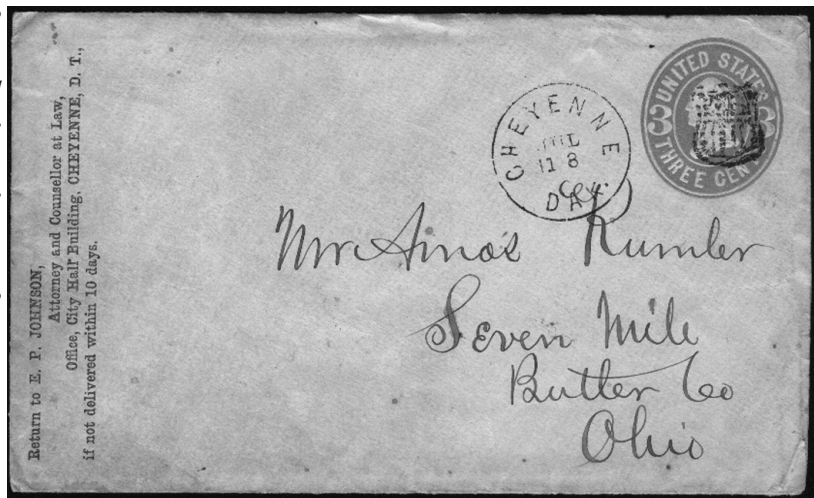 Return to E. P. JOHNSON,
Attorney and Counsellor at Law,
Office, City Hall Building, CHEYENNE, D. T.,
if not delivered within 10 days.
CHEYENNE
JUL
18
DAK.
UNITED STATES
THREE CENT
Mr Amos Kumler
Seven Mile
Butler Co
Ohio